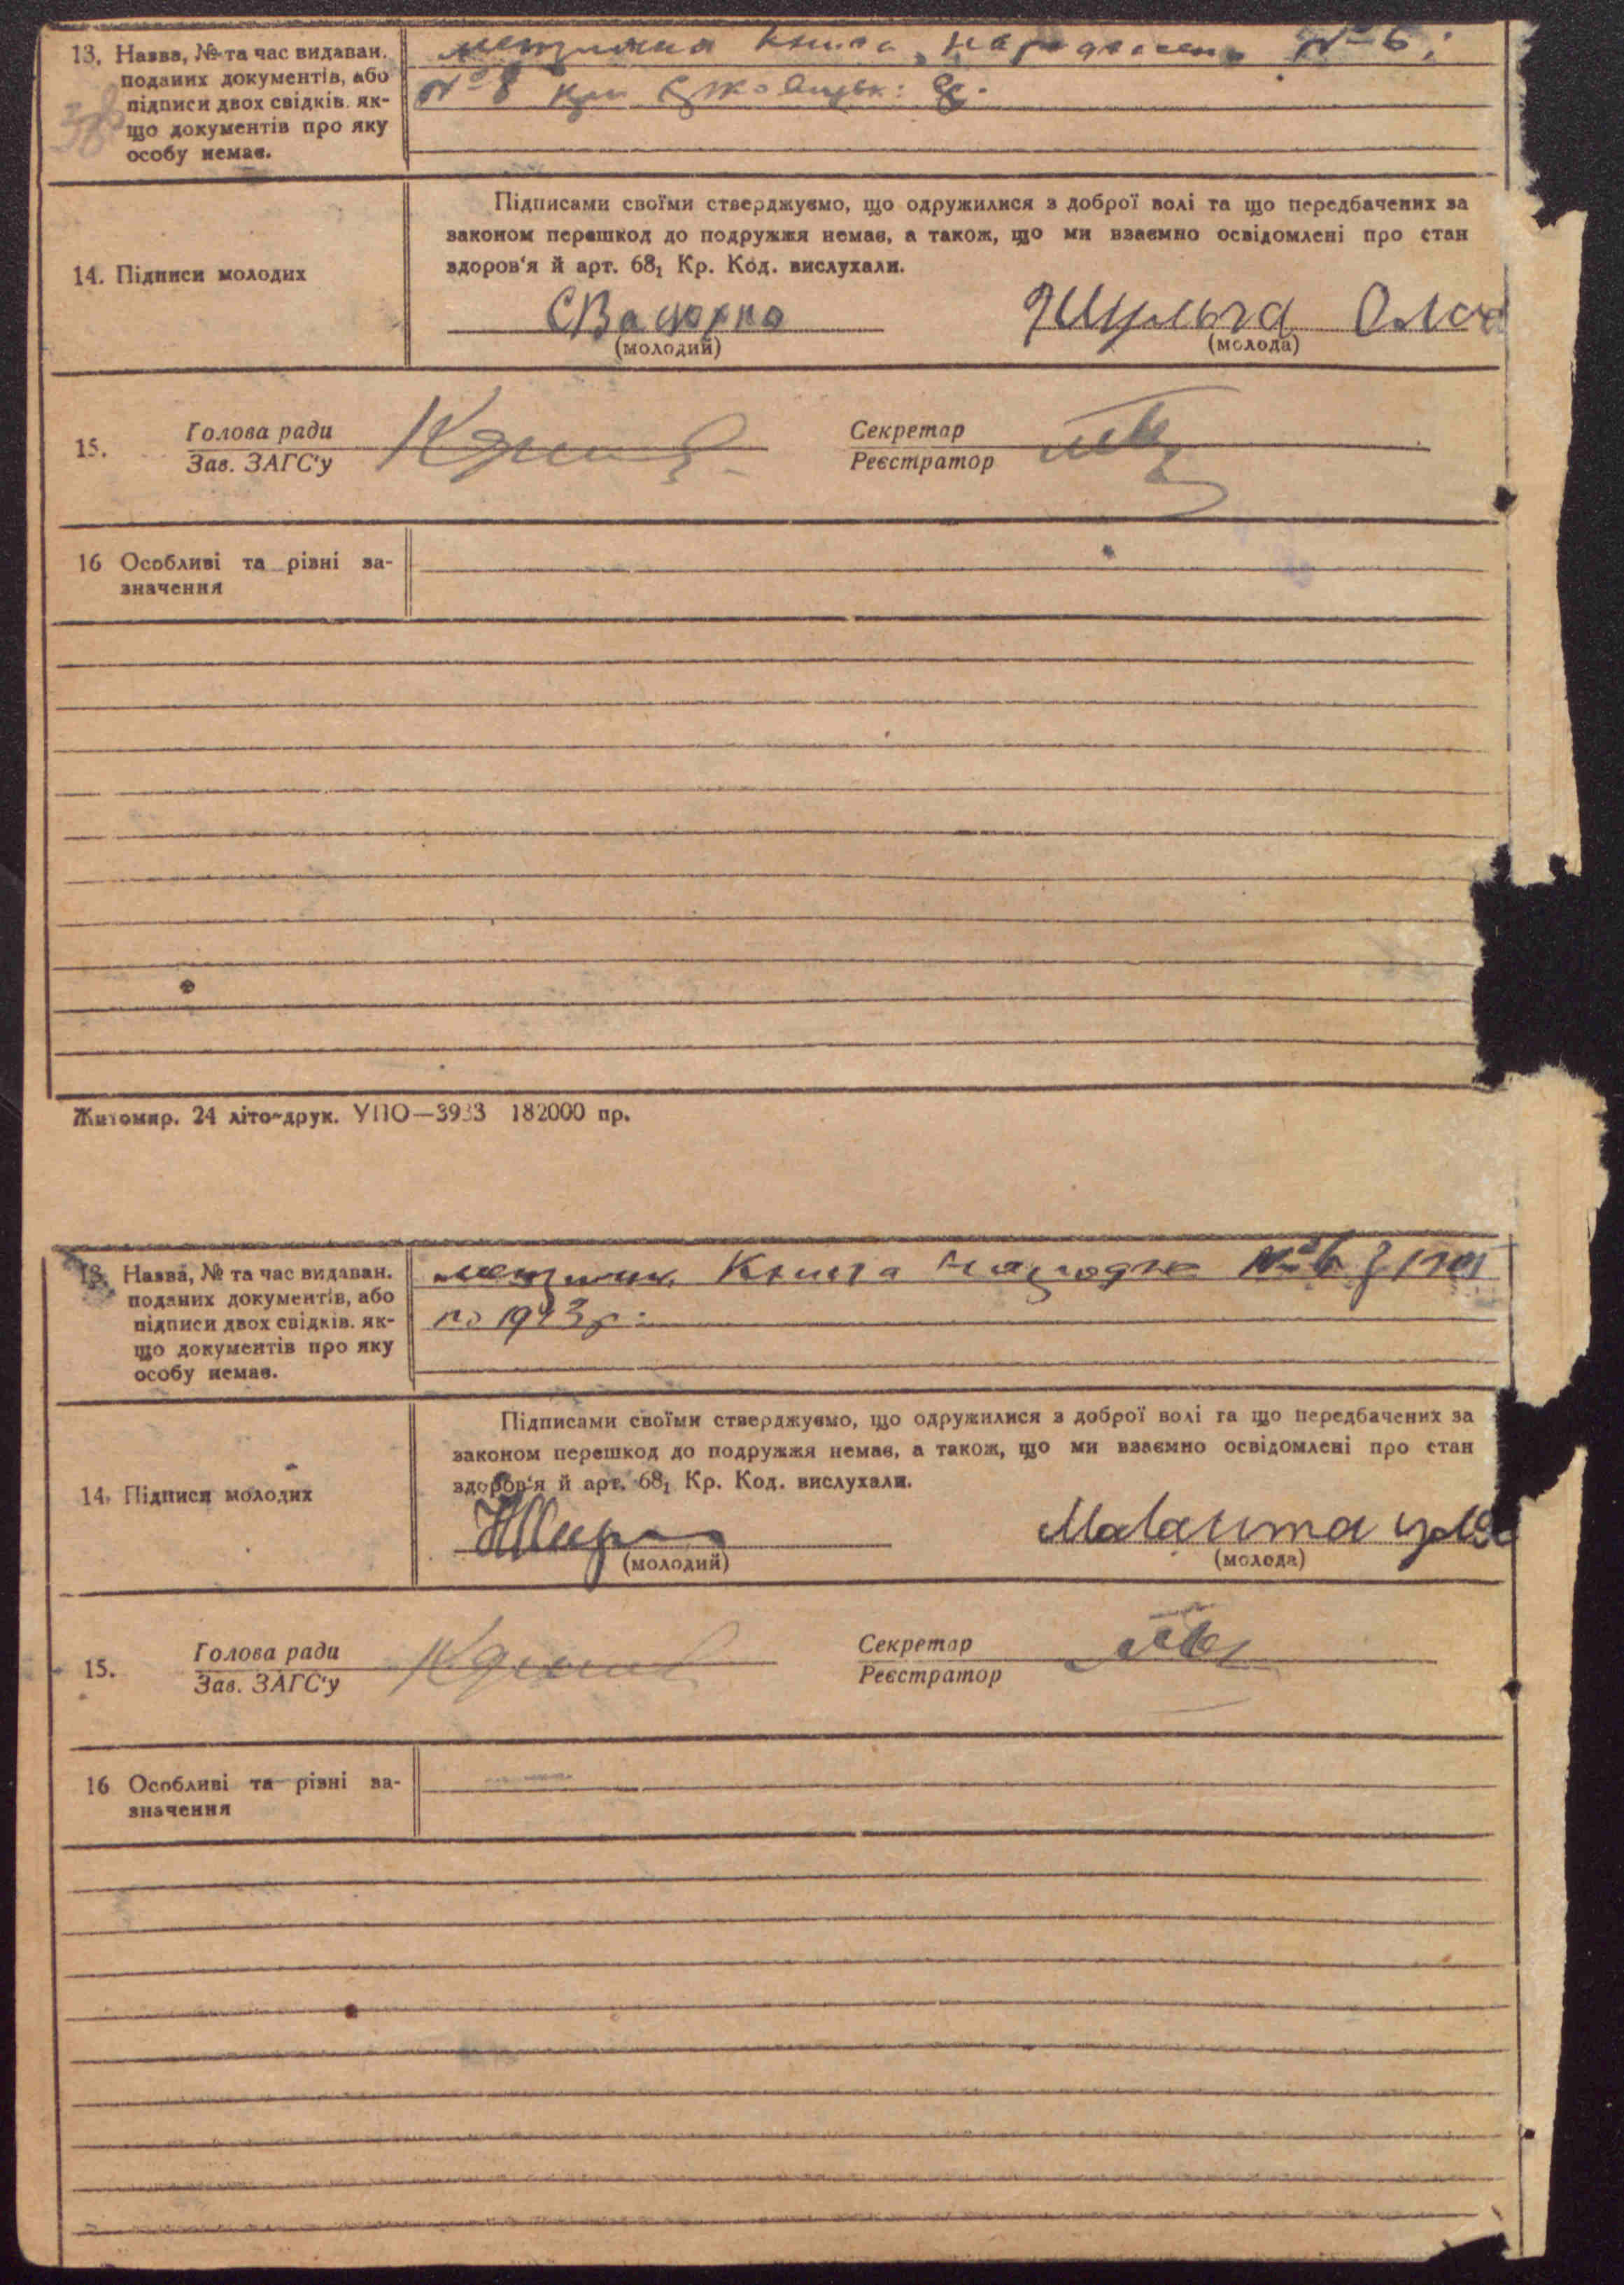 13. Назва, № та час видаван.
поданих документів, або
підписи двох свідків. як-
що документів про яку
особу немає.
книга № 6;
№ 8
14. Підписи молодих
Підписами своїми стверджуємо, що одружилися з доброї волі та що передбачених за
законом перешкод до подружжя немає, а також, що ми взаємно освідомлені про стан
здоров'я й арт. 68₁ Кр. Код. вислухали.
(молодий) (молода)
15.
Голова ради
Зав. ЗАГС'у
Секретар
Реєстратор
16 Особливі та різні за-
значення
Житомир. 24 літо-друк. УПО—3933 182000 пр.
13. Назва, № та час видаван.
поданих документів, або
підписи двох свідків. як-
що документів про яку
особу немає.
Книга № 6
по 1943 р.
14. Підписи молодих
Підписами своїми стверджуємо, що одружилися з доброї волі та що передбачених за
законом перешкод до подружжя немає, а також, що ми взаємно освідомлені про стан
здоров'я й арт. 68₁ Кр. Код. вислухали.
(молодий) (молода)
15.
Голова ради
Зав. ЗАГС'у
Секретар
Реєстратор
16 Особливі та різні за-
значення